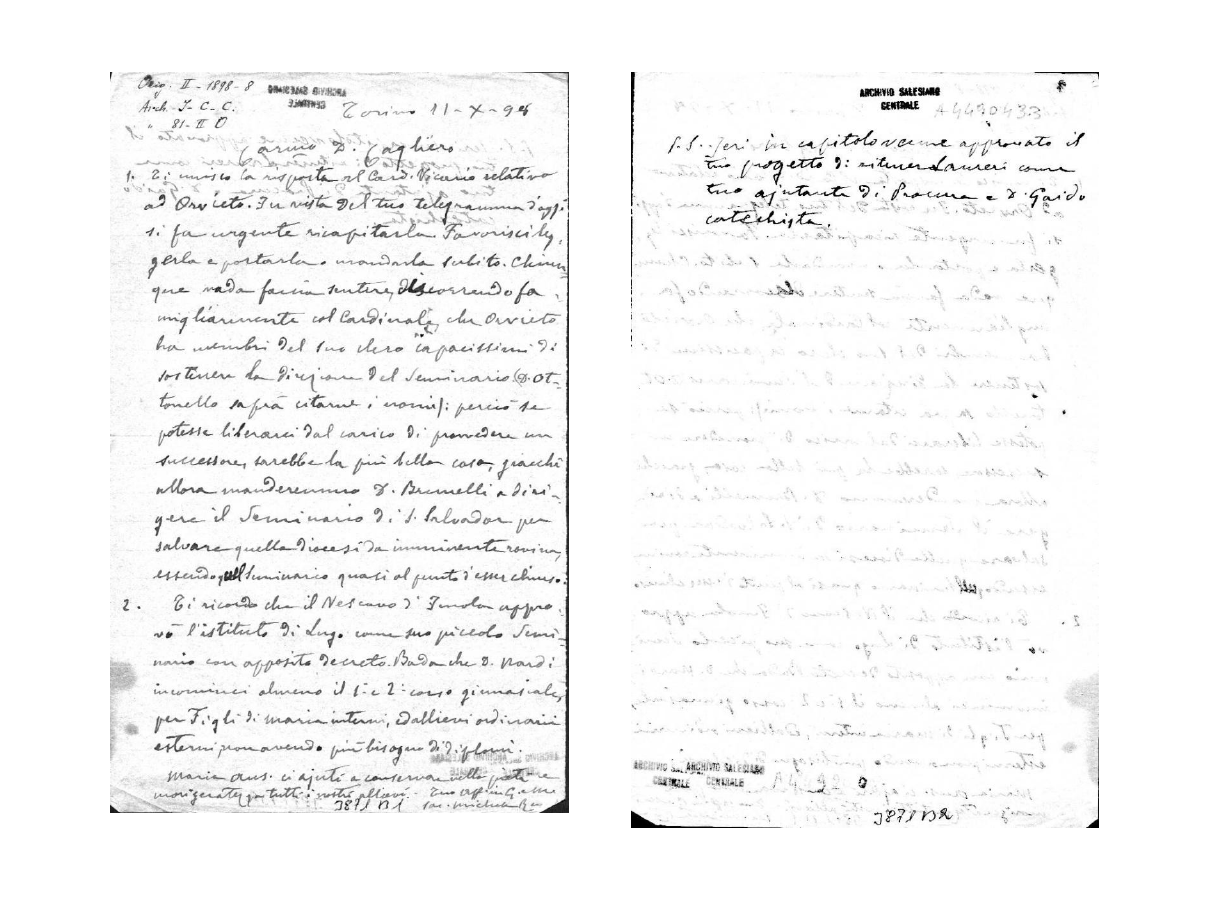 Orig. II - 1898 - 8
ARCHIVIO SALESIANO
CENTRALE
Arch. I - C - C.
" 81 - II O
Torino 11-X-98
Carmo D. Cagliero
1. Ti unisco la risposta al Card. Vicario relativo
ad Orvieto. In vista del tuo telegramma d'oggi
si fa urgente ricapitarla. Favorisci leg-
gerla e portarla o mandarla subito. Chiun-
que vada faccia sentire, discorrendo fa-
migliarmente col Cardinale, che Orvieto
ha membri del suo clero capacissimi di
sostenere la direzione del Seminario (D. Ot-
tonello saprà citarne i nomi): perciò se
potesse liberarci dal carico di provvedere un
successore, sarebbe la più bella cosa, giacchè
allora manderemmo D. Brunelli a diri-
gere il Seminario di S. Salvador per
salvare quella diocesi da imminente rovina,
essendo quel Seminario quasi al punto d'esser chiuso.
2. Ti ricordo che il Vescovo d'Imola appro-
vò l'istituto di Lugo come suo piccolo Semi-
nario con apposito decreto. Bada che D. Nardi
incominci almeno il 1° e 2° corso ginnasiale,
per Figli di Maria interni, ed allievi ordinarii
esterni non avendo più bisogno di diplomi.
Maria Aus. ci ajuti a conservar nella pietà e
morigeratezza tutti i nostri allievi. Tuo aff. in G. e M.
Sac. Michele Rua
3871 B1
ARCHIVIO SALESIANO
CENTRALE
A4490433
P.S. Ieri in capitolo venne approvato il
tuo progetto di ritener Laureri come
tuo ajutante di Procura e D. Gaido
catechista.
ARCHIVIO SALESIANO
CENTRALE CENTRALE
3871 B2